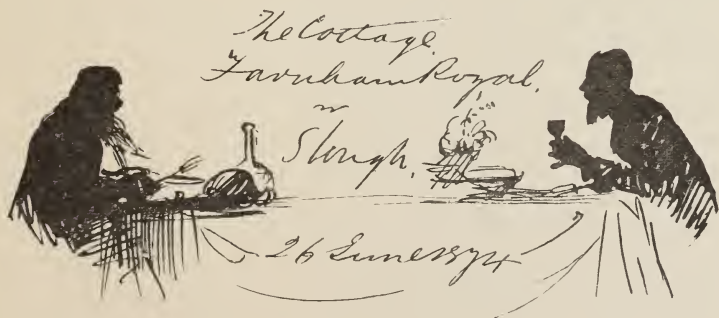 The Cottage
Farnham Royal,
nr
Slough,
26 June 1874